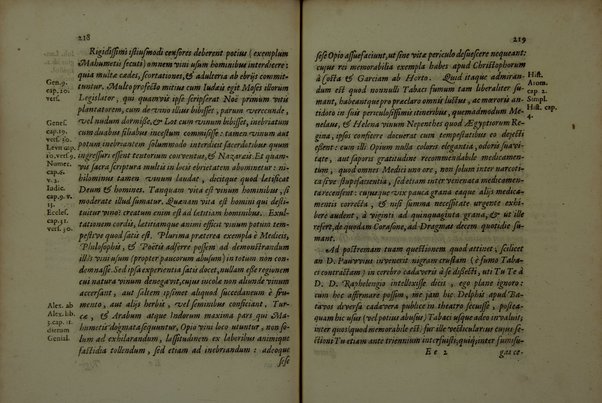 218
Rigidissimi istiusmodi censores deberent potius (exemplum
Mahumetis secuti) omnem vini usum hominibus interdicere:
quia multæ cædes, scortationes, & adulteria ab ebriis commit-
tuntur. Multo profecto mitius cum Iudæis egit Moses illorum
Legislator, qui quamvis ipse scripserat Noë primum vitis
plantatorem, cum de vino illius bibisset, parum verecunde,
vel nudum dormisse, & Lot cum vinum bibisset, inebriatum
cum duabus filiabus incestum commisisse: tamen vinum aut
potum inebriantem solummodo interdixit sacerdotibus quum
ingressuri essent tentorium conventus, & Nazaræis. Et quam-
vis sacra scriptura multis in locis ebrietatem abominetur: ni-
hilominus tamen vinum laudat, dicitque quod lætificat
Deum & homines. Tanquam vita est vinum hominibus, si
moderate illud sumatur. Quænam vita est homini qui desti-
tuitur vino: creatum enim est ad lætitiam hominibus. Exul-
tationem cordis, lætitiamque animi efficit vinum potum tem-
pestive quod satis est. Plurima præterea exempla è Medicis,
Philosophis, & Poëtis adferre possem ad demonstrandum
illis vini usum (propter paucorum abusum) in totum non con-
demnasse. Sed ipsa experientia satis docet, nullam esse regionem
cui natura vinum denegavit, cujus incolæ non aliunde vinum
accersant, aut saltem ipsimet aliquod succedaneum è fru-
mento, aut aliis herbis, vel seminibus conficiant. Tur-
cæ, & Arabum atque Indorum maxima pars quæ Ma-
humetis dogmata sequuntur, Opio vini loco utuntur, non so-
lum ad exhilarandum, lassitudinem ex laboribus animique
fastidia tollendum, sed etiam ad inebriandum: adeoque
sese
Gen. 9.
cap. 20.
vers.
Genes.
cap. 19.
vers.
Levit cap.
10. vers.
Numer.
cap. 6
v. 2.
Iudic.
cap. 9. v.
13.
Eccles.
cap. 31.
vers. 30.
Alex. ab
Alex. lib.
3. cap. 11.
dierum
Genial.
219
sese Opio assuefaciunt, ut sine vitæ periculo desuescere nequeant:
cujus rei memorabilia exempla habes apud Christophorum
à Costa & Garciam ab Horto. Quid itaque admiran-
dum est quod nonnulli Tabaci fumum tam liberaliter su-
mant, habeantque pro præclaro omnis luctus, ac mœroris an-
tidoto in suis periculosissimis itineribus, quemadmodum Me-
nelaus, & Helena vinum Nepenthes quod Ægyptiorum Re-
gina, ipsis conficere docuerat cum tempestatibus eo dejecti
essent: cum illi Opium nulla coloris elegantia, odoris suavi-
tate, aut saporis gratitudine recommendabile medicamen-
tum, quod omnes Medici uno ore, non solum inter narcoti-
ca sive stupefacientia, sed etiam inter venenata medicamen-
ta recensent: cujusque vix pauca grana eaque aliis medica-
mentis correcta, & nisi summa necessitate urgente exhi-
bere audent, à viginti ad quinquaginta grana, & ut ille
refert, de quodam Corasone, ad Dragmas decem quotidie su-
mant.
Ad postremam tuam quæstionem quod attinet, scilicet
an D. Pauwius invenerit nigram crustam (è fumo Taba-
ci contractam) in cerebro cadaveris à se dissecti, uti Tu Te à
D. D. Raphelengio intellexisse dicis, ego plane ignoro:
tum hoc affirmare possum, me, jam hic Delphis apud Ba-
tavos diversa cadavera publice in theatro secuisse, postea-
quam hic usus (vel potius abusus) Tabaci usque adeo invaluit;
inter quos quod memorabile est fur ille vestiarius cujus se-
ctioni Tu etiam ante triennium interfuisti, quique inter fumisu-
Ee 2
gas ce-
Hist.
Arom.
cap. 2.
Simpl.
Hist. cap.
4.